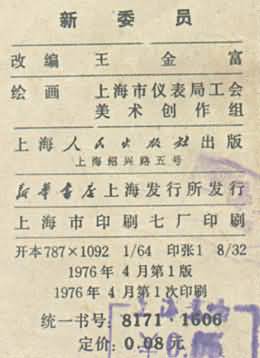 新委员
改编 王金富
绘画 上海市仪表局工会
美术创作组
上海人民出版社出版
上海绍兴路五号
新华书店上海发行所发行
上海市印刷七厂印刷
开本787×1092 1/64 印张1 8/32
1976年4月第1版
1976年4月第1次印刷
统一书号: 8171·1606
定价: 0.08元